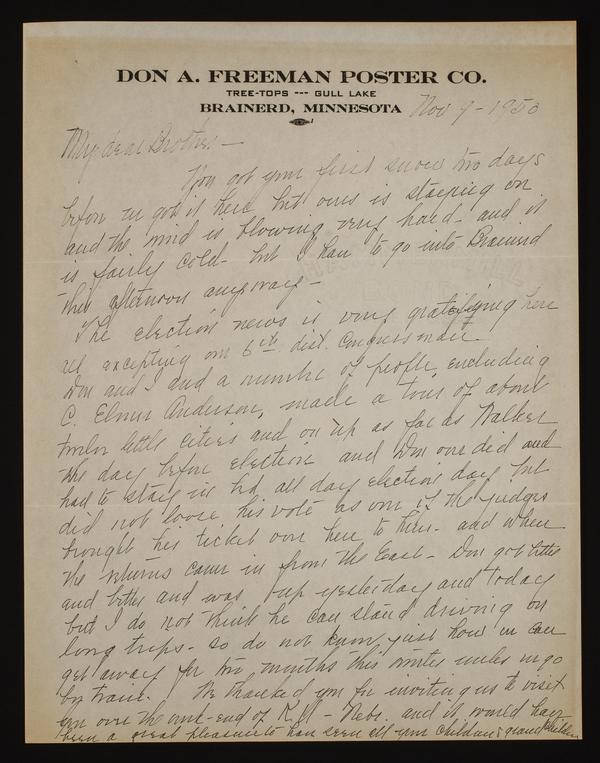 DON A. FREEMAN POSTER CO.
TREE-TOPS --- GULL LAKE
BRAINERD, MINNESOTA
Nov 9 - 1950
My dear Brother -
You got your first snow two days
before we got it here but ours is staying on
and the wind is blowing very hard - and it
is fairly cold - but I have to go into Brainerd
this afternoon anyway -
The election news is very gratifying here
excepting our 6th dist. Congressman.
Don and I and a number of people, including
C. Elmer Anderson, made a tour of about
twelve little cities and on up as far as Walker
the day before election and Don over did and
had to stay in bed all day election day but
did not loose his vote as one of the judges
brought his ticket over here to him - and when
the returns came in from the East - Don got better
and better and was up yesterday and today
but I do not think he can stand driving on
long trips - so do not know just how we can
get away for two months this winter unless we go
by train. We thanked you for inviting us to visit
you over the - end of K.M - Nebr. and it would have
been a great pleasure to have seen all your children & grand children